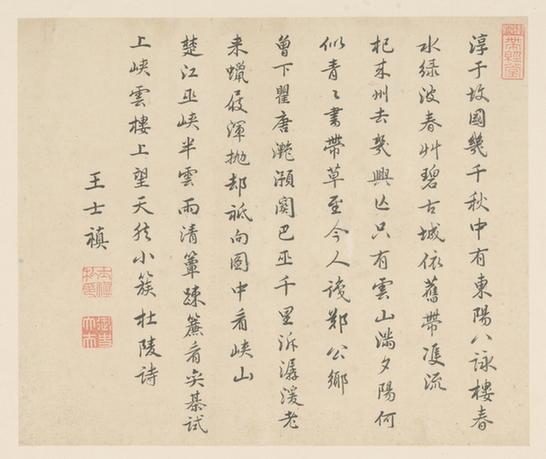 淳于故國幾千秋中有東陽八詠樓春
水綠波春艸碧古城依舊帶雙流
杞來州去幾興亡只有雲山滿夕陽何
似青〻書帶草至今人識鄭公鄉
曾下瞿唐灔澦關巴巫千里泝潺湲老
来蠟屐渾抛却祗向圖中看峽山
楚江巫峽半雲雨清簟疎簾看奕棊試
上峽雲樓上望天然小簇杜陵詩
王士禛